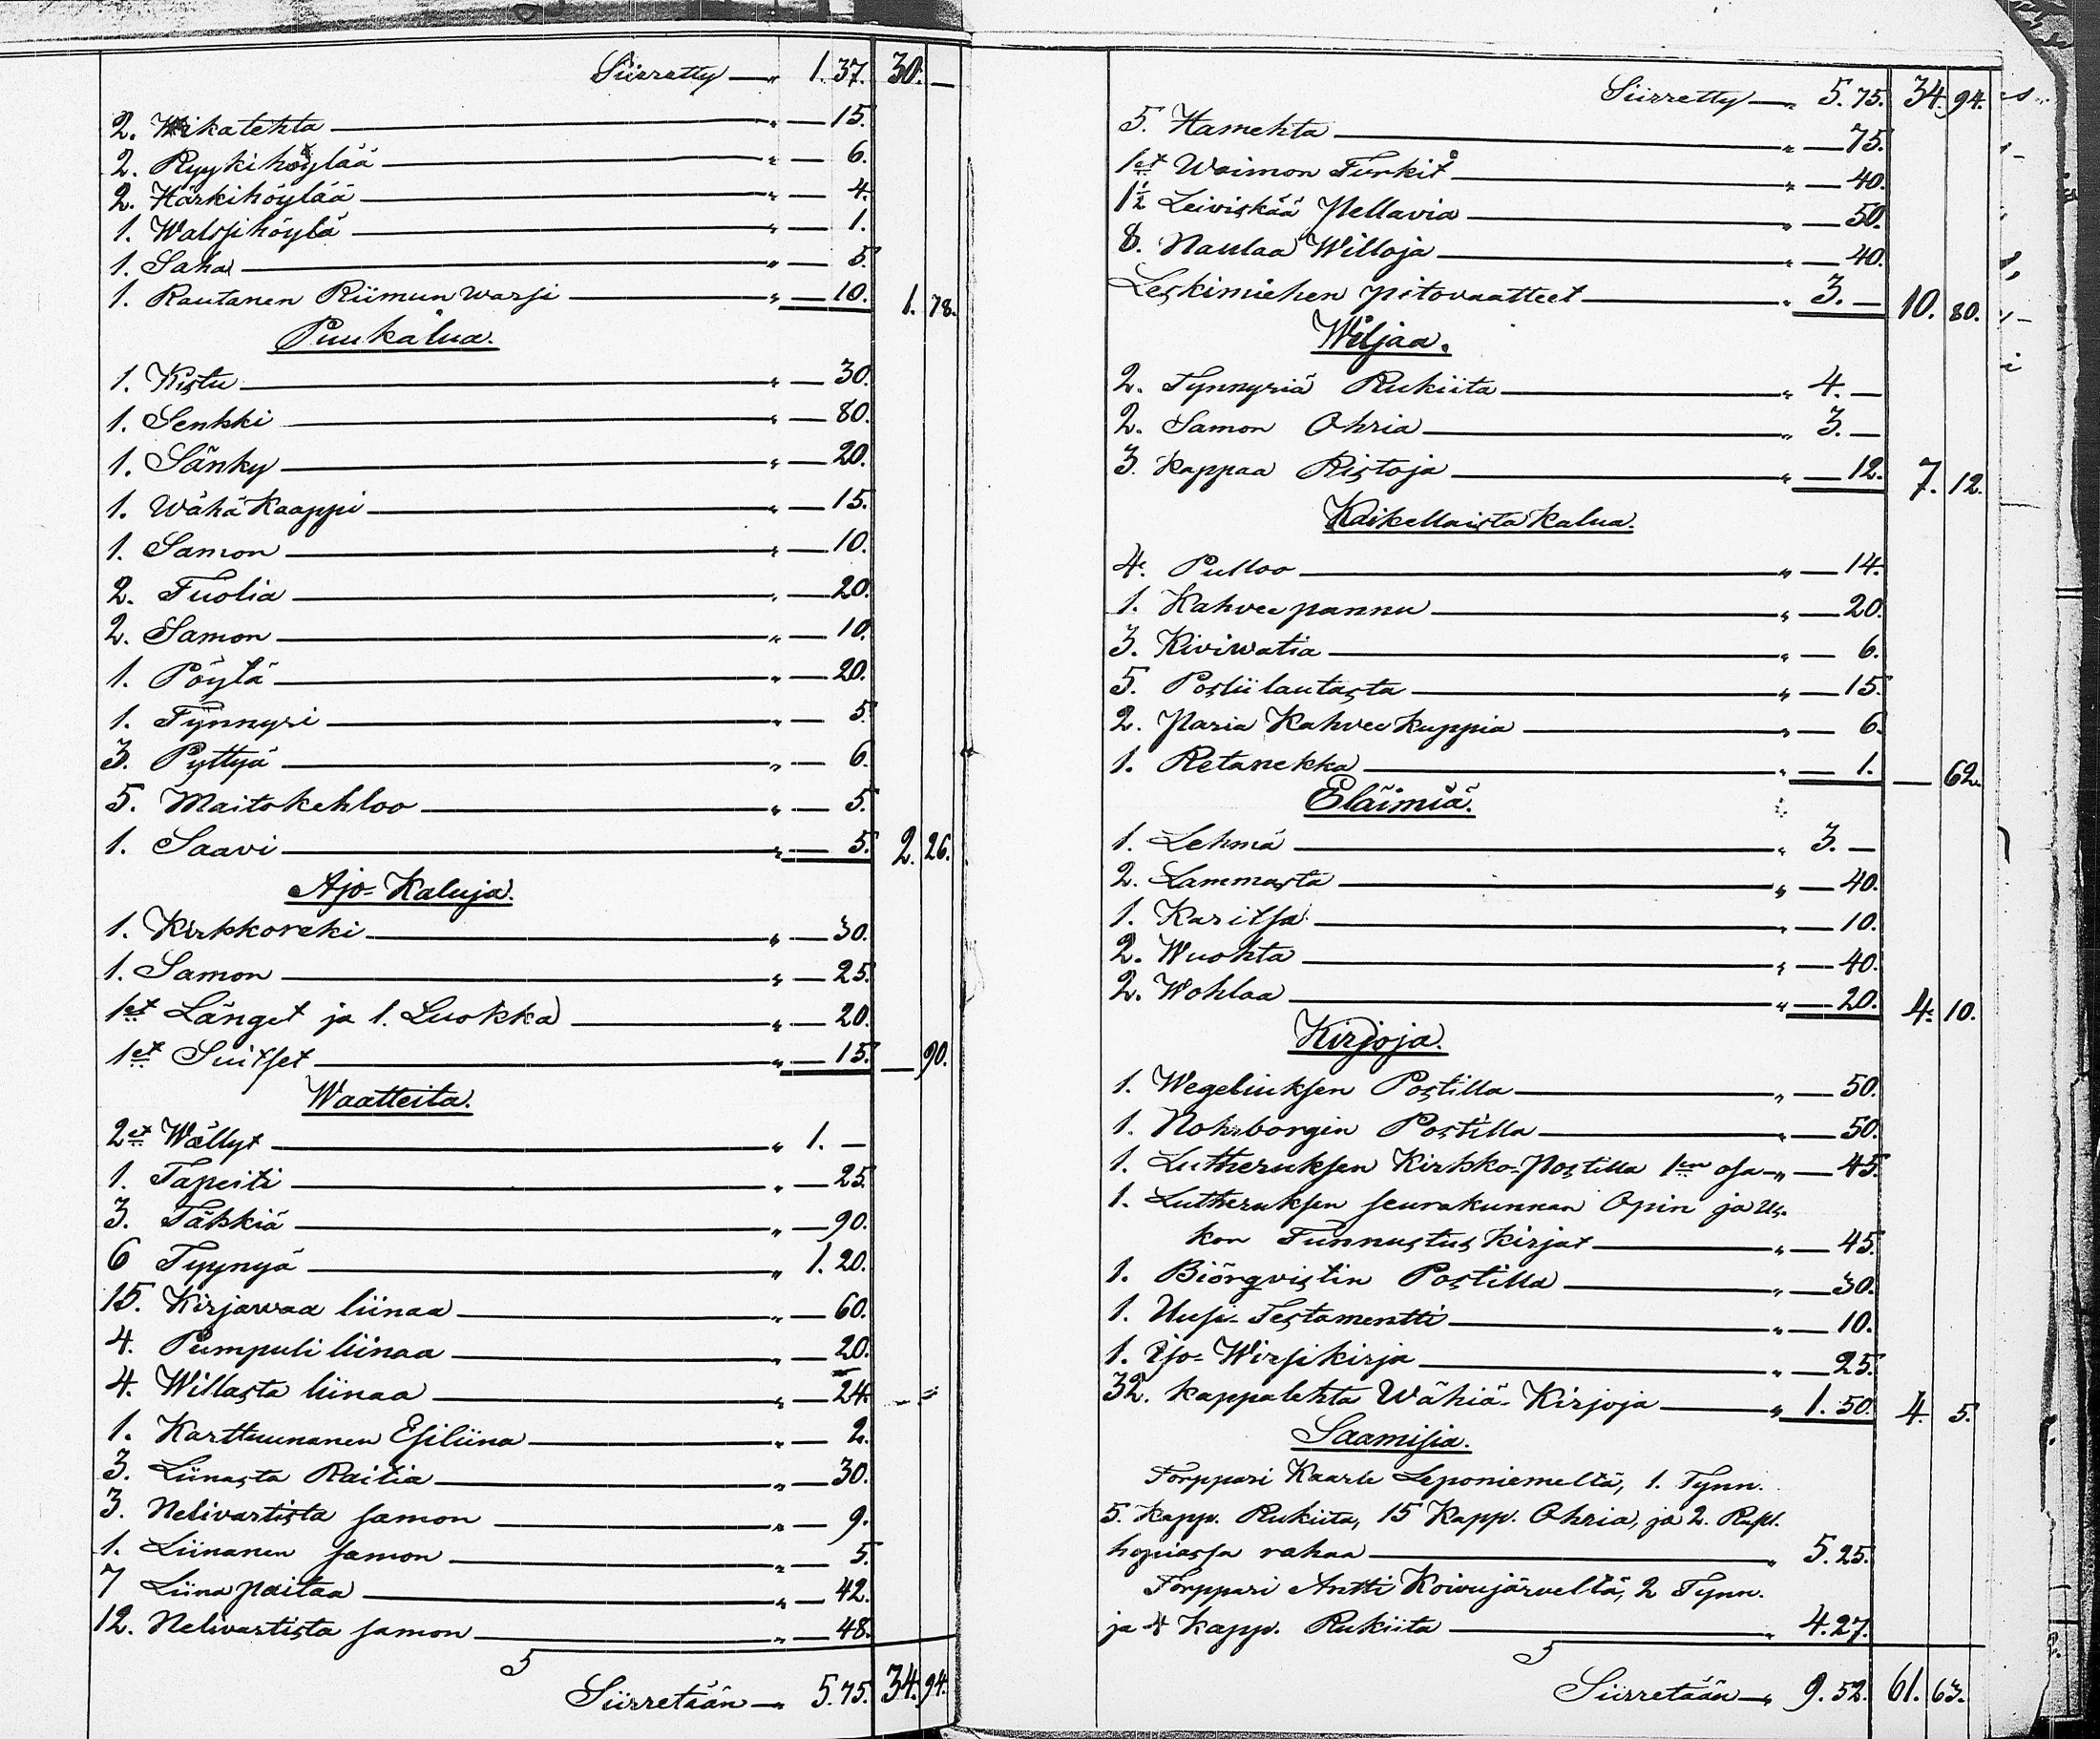 Siirretty — " 1.37. 30. —
2. Wikatehta — " — 15.
2. Ryykihöylää — " — 6.
2. Härkihöylää — " — 4.
1. Walssihöylä — " — 1.
1. Saha — " — 5.
1. Rautanen Riimun warsi — " — 10. 1. 78.
Puukalua.
1. Kistu — " — 30.
1. Senkki — " — 80.
1. Sänky — " — 20.
1. Wähä Kaappi — " — 15.
1. Samon — " — 10.
2. Tuolia — " — 20.
2. Samon — " — 10.
1. Pöytä — " — 20.
1. Tynnyri — " — 5.
3. Pyttyä — " — 6.
5. Maitokehloo — " — 5.
1. Saavi — " — 5. 2. 26.
Ajo-Kaluja.
1. Kirkkoreki — " — 30.
1. Samon — " — 25.
1et Länget ja 1. Luokka — " — 20.
1et Suitset — " — 15. — 90.
Waatteita.
2et Wällyt — " 1. —
1. Tapeiti — " — 25.
3. Täkkiä — " — 90.
6 Tyynyä — " 1. 20.
15. Kirjawaa liinaa — " — 60.
4. Pumpuli liinaa — " — 20.
4. Willasta liinaa — " — 24.
1. Karttuunanen Esiliina — " — 2.
3. Liinasta Raitia — " — 30.
3. Nelivartista samon — " — 9.
1. Liinanen samon — " — 5.
7 Liina paitaa — " — 42.
12. Nelivartista samon — " — 48.
Siirretään — " 5.75. 34. 94.
Siirretty — " 5.75. 34. 94.
5. Hamehta — " — 75.
1et Waimon Turkit — " — 40.
1½ Leiviskää Pellavia — " — 50.
8. Naulaa Willoja — " — 40.
Leskimiehen pitovaatteet — " 3. — 10. 80.
Wiljaa.
2. Tynnyriä Rukiita — " 4. —
2. Samon Ohria — " 3. —
3. Kappaa Ristoja — " — 12. 7. 12.
Kaikellaista kalua.
4. Pulloo — " — 14.
1. Kahvee pannu — " — 20.
3. Kiviwatia — " — 6.
5. Posliilautasta — " — 15.
2. Paria Kahvee kuppia — " — 6.
1. Retanekka — " — 1. — 62.
Eläimiä.
1. Lehmä — " 3. —
2. Lammasta — " — 40.
1. Karitsa — " — 10.
2. Wuohta — " — 40.
2. Wohlaa — " — 20. 4. 10.
Kirjoja.
1. Wegeliuksen Postilla — " — 50.
1. Nohrborgin Postilla — " — 50.
1. Lutheruksen Kirkko-Postilla 1en osa — " — 45.
1. Lutheruksen seurakunnan Opin ja Us-
kon Tunnustus Kirjat — " — 45.
1. Biörqvistin Postilla — " — 30.
1. Uusi-Testamentti — " — 10.
1. iso-Wirsikirja — " — 25.
32. kappalehta Wähiä-Kirjoja — " 1. 50. 4. 5.
Saamisia.
Torppari Kaarle Leponiemeltä, 1. Tynn.
5. Kapp. Rukiita, 15 Kapp. Ohria, ja 2. Rupl.
hopiassa rahaa — " 5.25.
Torppari Antti Koivujärveltä, 2 Tynn.
ja 4 Kapp. Rukiita — " 4.27.
Siirretään — " 9.52. 61. 63.